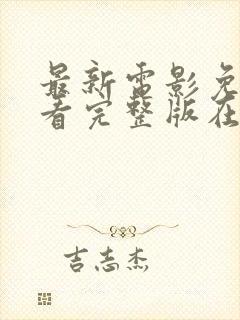 最新雷影免
看完整版在
吉志杰